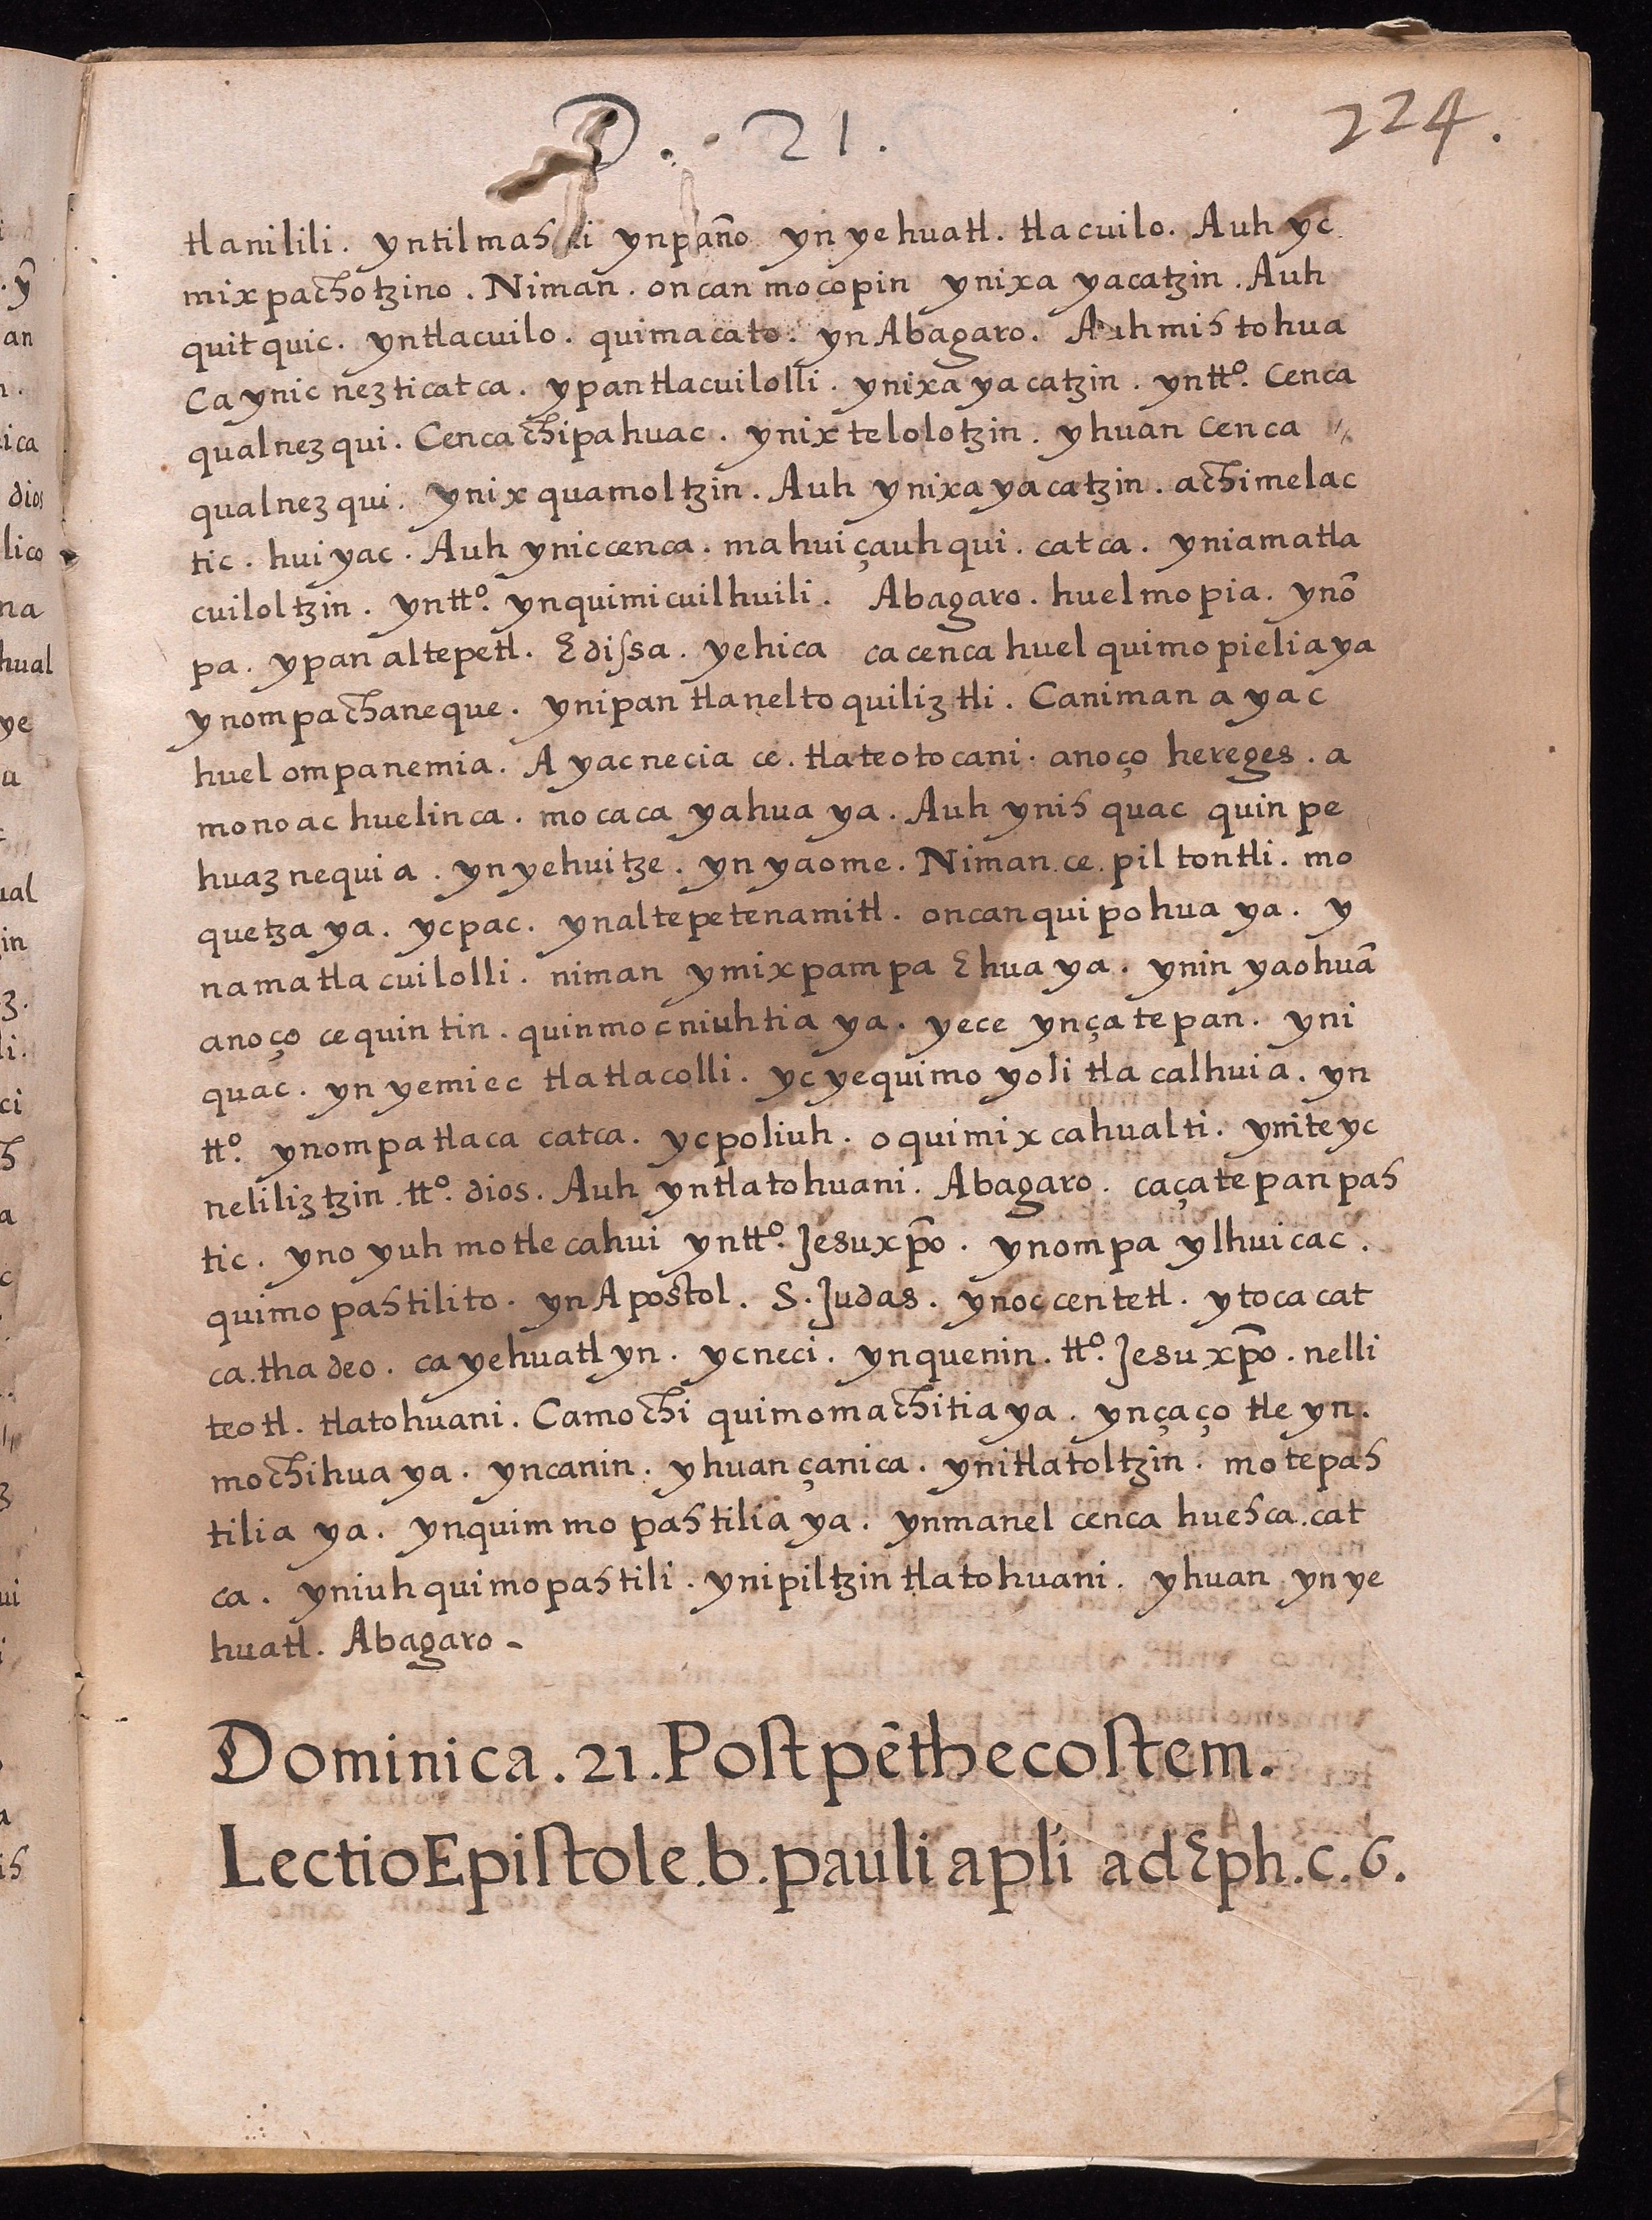 D. 21.
224.
tlanilili. yntilmashti ynpaño yn yehuatl. tlacuilo. Auh yc
mixpachotzino. Niman. oncan mocopin ynixa yacatzin. Auh
quitquic. yntlacuilo. quimacato. yn Abagaro. Auh mis tohua
Ca ynic nezticatca. ypantlacuilolli. ynixa yacatzin. yntt.º Cenca
qualnezqui. Cenca chipahuac. ynixtelolotzin. yhuan Cenca
qualnezqui. ynixquamoltzin. Auh ynixa yacatzin. achimelac
tic. huiyac. Auh yniccenca. mahuiçauhqui. catca. yniamatla
cuiloltzin. yntt.º ynquimicuilhuili. Abagaro. huelmopia. ynō
pa. ypan altepetl. Edissa. yehica cacenca huel quimopieliaya
ynompachaneque. ynipan tlaneltoquiliztli. Caniman ayac
huel ompanemia. Ayacnecia ce. tlateotocani. anoço hereges. a
monoac huelinca. mocaca yahuaya. Auh ynis quac quin pe
huaznequia. ynyehuitze. yn yaome. Niman ce piltontli. mo
quetzaya. ycpac. ynaltepetenamitl. oncanquipohuaya. y
namatlacuilolli. niman ymixpampa Ehuaya. ynin yaohuā
anoço cequintin. quinmocniuhtiaya. yece ynçatepan. yni
quac. yn yemiec tlatlacolli. yc yequimo yolitlacalhuia. yn
tt.º ynompatlaca catca. ycpoliuh. oquimixcahualti. yniteyc
neliliztzin tt.º dios. Auh yntlatohuani. Abagaro. caçatepan pas
tic. yno yuh motlecahui yntt.º Jesuxp̄o. ynompa ylhuicac.
quimopastilito. yn Apostol. S. Judas. ynoccentetl. ytocacat
ca. thadeo. cayehuatl yn. ycneci. ynquenin. tt.º Jesuxp̄o. nelli
teotl. tlatohuani. Camochi quimomachitiaya. ynçaço tleyn.
mochihuaya. yncanin. yhuan çanica. ynitlatoltzin. motepas
tiliaya. ynquimmopastiliaya. ynmanel cenca huesca. cat
ca. yniuh quimopastili. ynipiltzin tlatohuani. yhuan ynye
huatl. Abagaro-
Dominica. 21. Post pēthecostem.
Lectio Epistole. b. pauli apli ad Eph. c. 6.